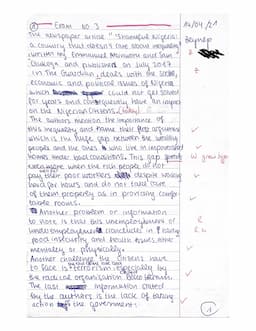 Exam No. 3
14/04/21
The newspaper article "Shameful Nigeria:
a country that doesn't care about inequality"
written by Emmanuel Akinwotu and Sam
Olukoya and published on July 2017
in The Guardian, deals with the social,
economic and political issues of Nigeria
which could not get solved
for years and consequently have an impact
on the Nigerian Citizens (today)
The authors mention the importance of
this inequality and name first arguments
which is the huge gap between the wealthy
people and the ones who live in impoverished
homes under bad conditions. This gap
even more when the rich people do not
pay their poor workers despite working
hard for hours and do not take care
of them properly as in providing comfor-
table rooms.
Another problem or information
to note is that this unemployment or
underemployment concludes in
food insecurity and health issues either
mentally or physically.
Another challenge the citizens have
to face is terrorism especially by
the radical organisation Boko Haram.
The last information stated
by the authors is the lack of taking
action by the government.
W
R
1